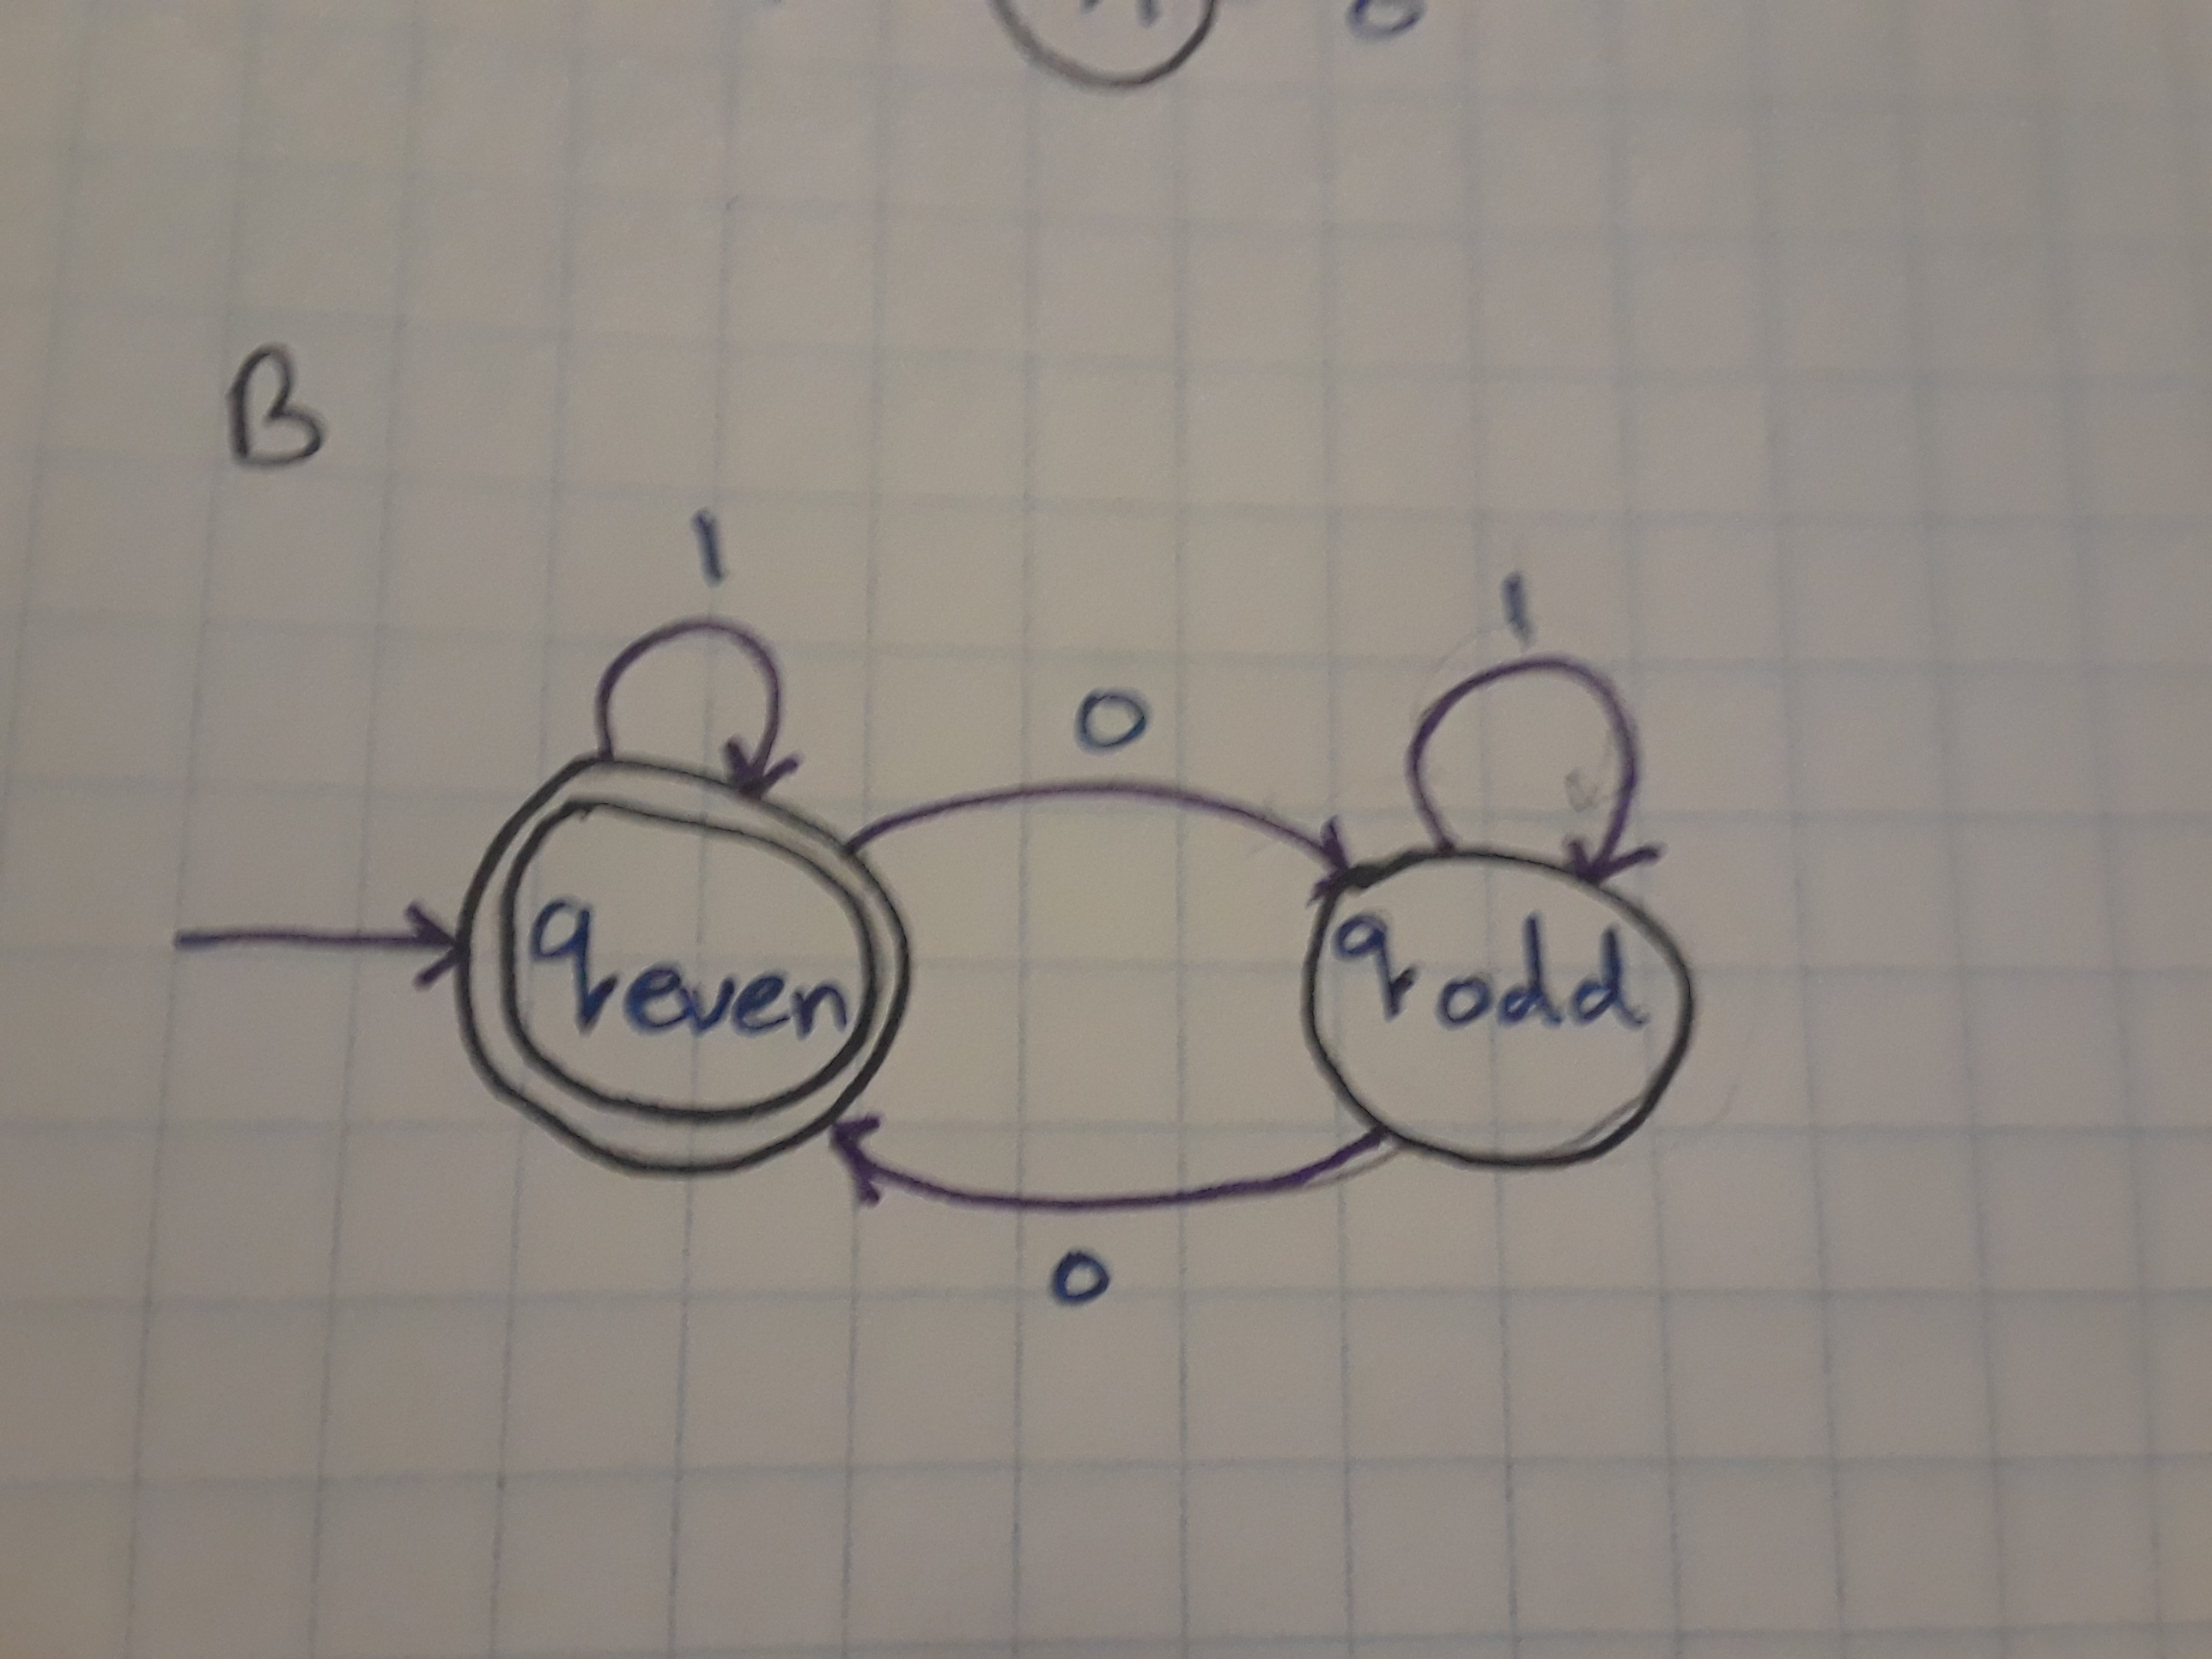 B
1
1
0
qeven
qodd
0